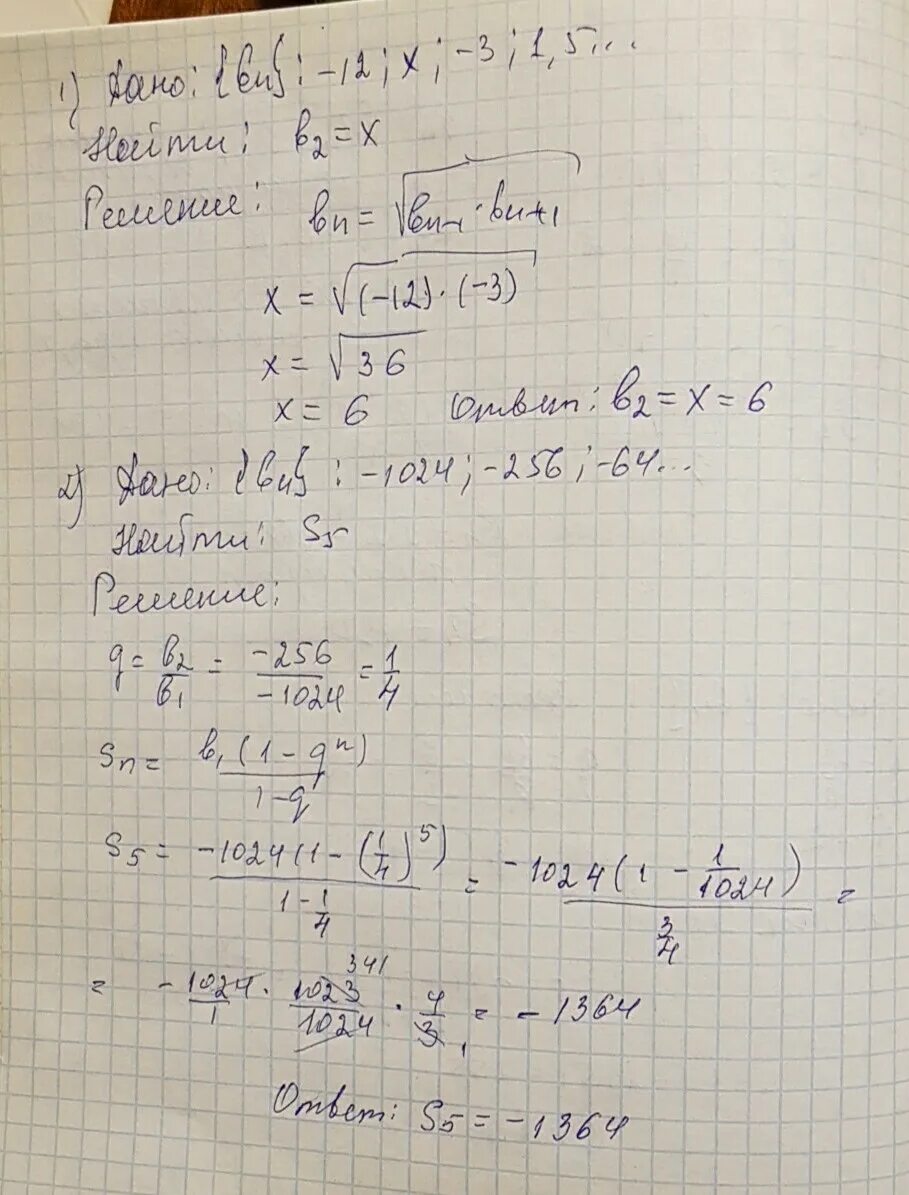 1) Дано: {bn}: -12; x; -3; 1,5...
Найти: b₂ = x
Решение: bn = √(bn-1 · bn+1)
x = √((-12) · (-3))
x = √36
x = 6 Ответ: b₂ = x = 6
2) Дано: {bn}: -1024; -256; -64...
Найти: S₅
Решение:
q = b₂/b₁ = -256/-1024 = 1/4
Sn = b₁(1 - qⁿ)/(1 - q)
S₅ = -1024(1 - (1/4)⁵)/(1 - 1/4) = -1024(1 - 1/1024)/(3/4) =
= -1024/1 · 1023/1024 · 4/3 = -1364
341 1
Ответ: S₅ = -1364